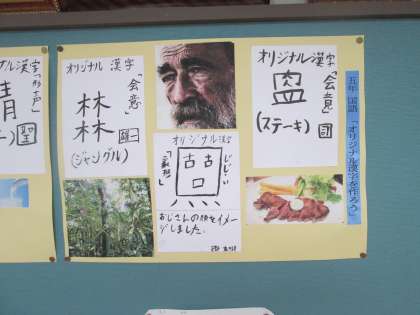 五年 国語 「オリジナル漢字を作ろう」
オリジナル漢字
「会意」
(ステーキ)
オリジナル漢字
じじい
「象形」
おじさんの顔をイメー
ジしました。
オリジナル 漢字
「会意」
林
林
(ジャングル)
ナル漢字
「形声」